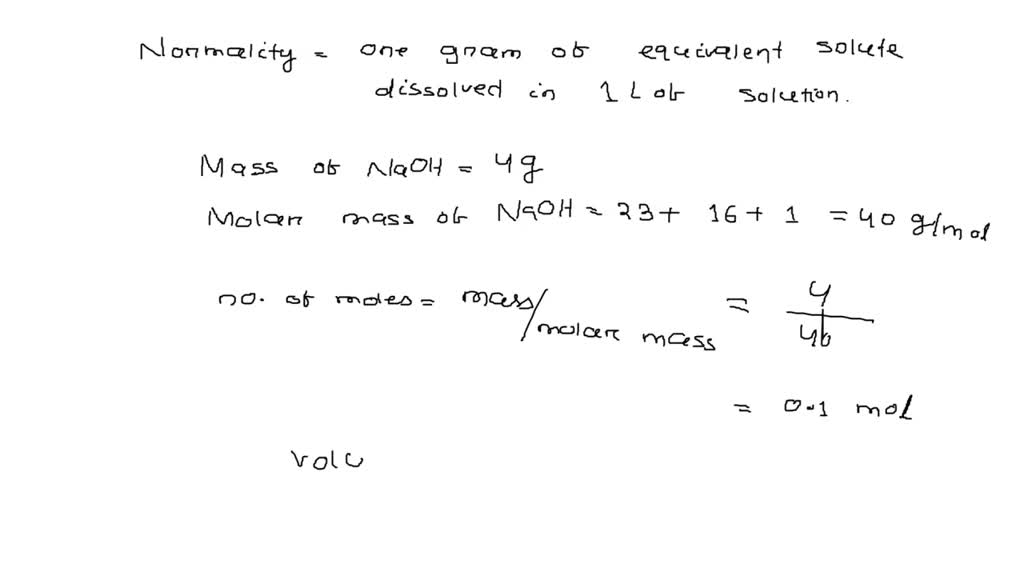 Normality = one gram of equivalent solute
dissolved in 1 L of solution.
Mass of NaOH = 4g
Molar mass of NaOH = 23 + 16 + 1 = 40 g/mol
no. of moles = mass/molar mass = 4/40
= 0.1 mol
volu